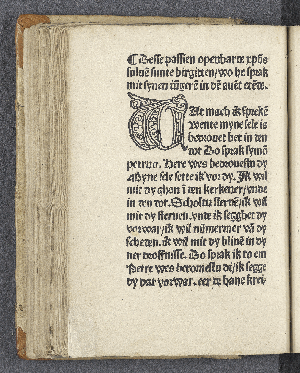 ¶ Desse passien openbarte xp̄s
sulue sunte birgitten / wo he sprak
mit synen iūgerē in dē auēt etēte.
WAt mach ik sprekē
wente myne sele is
bedrouet bet in den
dot Do sprak symō
petrus. Here wes bedrouestu dy
Myne sele sette ik vor dy. Ik wil
mit dy ghan ī den kerkener / vnde
in den dot. Scholtu steruē / ik wil
mit dy steruen. vnde ik segghet dy
vorwar / ik wil nūmermer vā dy
scheden. ik wil mit dy bliuē in dy
ner droffnisse. Do sprak ik to em
Petre wes bedrouestu dē / ik segge
dy dat vorwar. eer de hane krei⸗